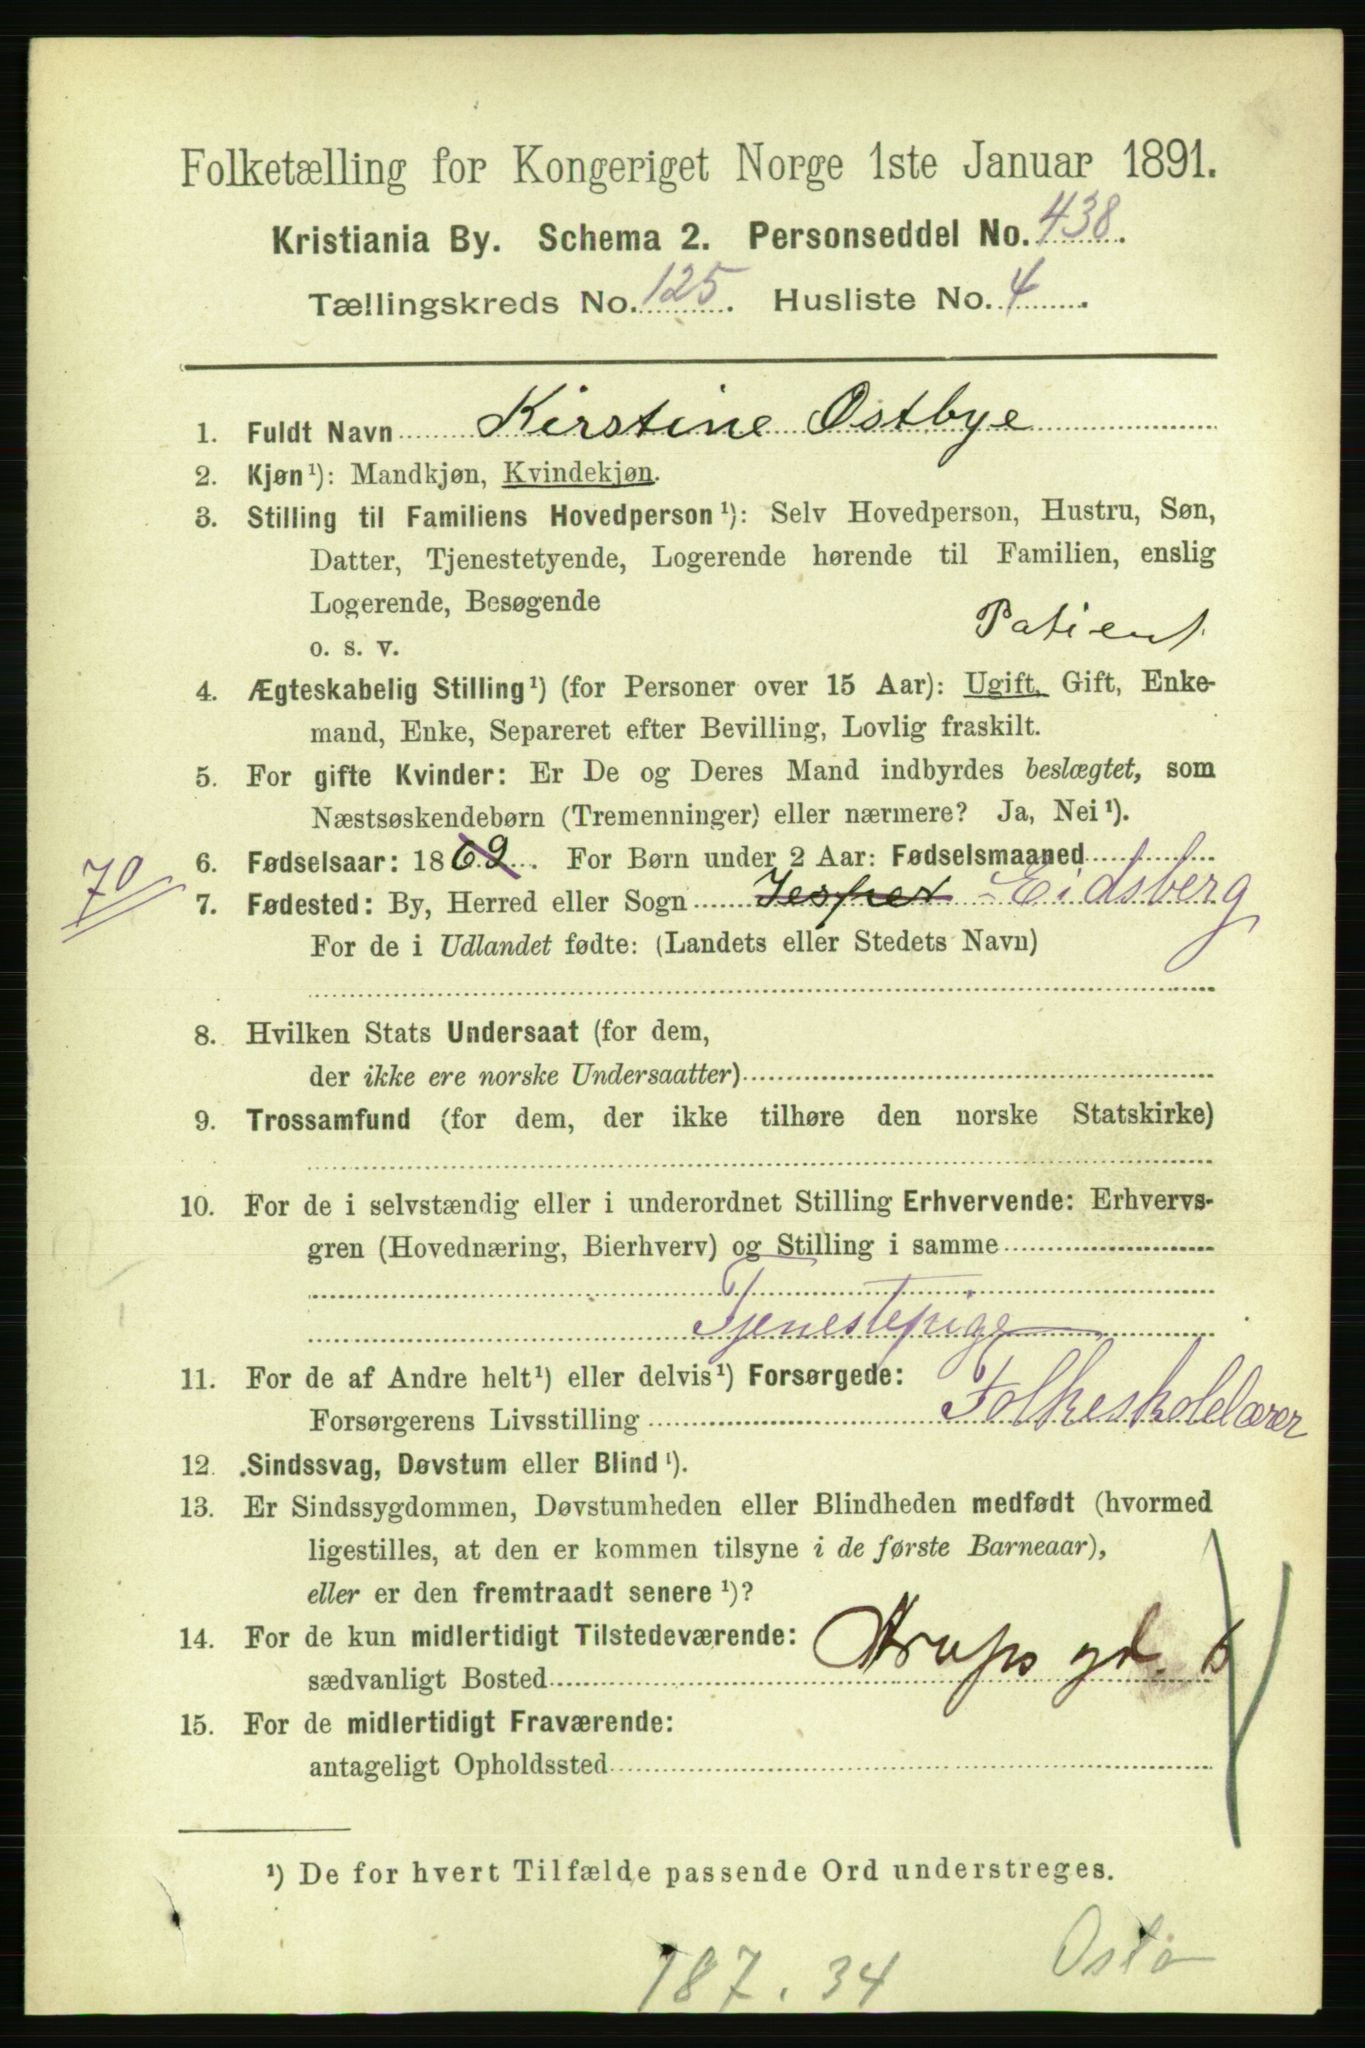 Folketælling for Kongeriget Norge 1ste Januar 1891.
Kristiania By. Schema 2. Personseddel No. 438.
Tællingskreds No. 125. Husliste No. 4.
1. Fuldt Navn Kirstine Østbye
2. Kjøn¹): Mandkjøn, Kvindekjøn.
3. Stilling til Familiens Hovedperson¹): Selv Hovedperson, Hustru, Søn,
Datter, Tjenestetyende, Logerende hørende til Familien, enslig
Logerende, Besøgende
o. s. v. Patient
4. Ægteskabelig Stilling¹) (for Personer over 15 Aar): Ugift, Gift, Enke-
mand, Enke, Separeret efter Bevilling, Lovlig fraskilt.
5. For gifte Kvinder: Er De og Deres Mand indbyrdes beslægtet, som
Næstsøskendebørn (Tremenninger) eller nærmere? Ja, Nei¹).
70 6. Fødselsaar: 1869. For Børn under 2 Aar: Fødselsmaaned
7. Fødested: By, Herred eller Sogn Eidsberg
For de i Udlandet fødte: (Landets eller Stedets Navn)
8. Hvilken Stats Undersaat (for dem,
der ikke ere norske Undersaatter)
9. Trossamfund (for dem, der ikke tilhøre den norske Statskirke)
10. For de i selvstændig eller i underordnet Stilling Erhvervende: Erhvervs-
gren (Hovednæring, Bierhverv) og Stilling i samme
Tjenestepige
11. For de af Andre helt¹) eller delvis¹) Forsørgede:
Forsørgerens Livsstilling Folkeskolelærer
12. Sindssvag, Døvstum eller Blind¹).
13. Er Sindssygdommen, Døvstumheden eller Blindheden medfødt (hvormed
ligestilles, at den er kommen tilsyne i de første Barneaar),
eller er den fremtraadt senere¹)?
14. For de kun midlertidigt Tilstedeværende:
sædvanligt Bosted gd. 6
15. For de midlertidigt Fraværende:
antageligt Opholdssted
¹) De for hvert Tilfælde passende Ord understreges.
187.34 Oslo